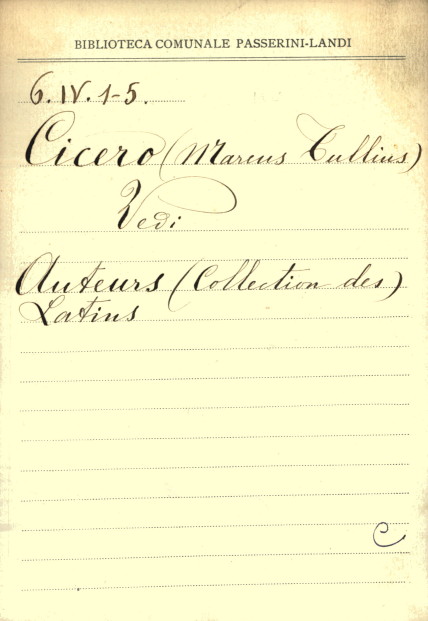 BIBLIOTECA COMUNALE PASSERINI-LANDI
6.IV.1-5.
Cicero (Marcus Tullius)
Vedi
Auteurs (Collection des)
Latins
C